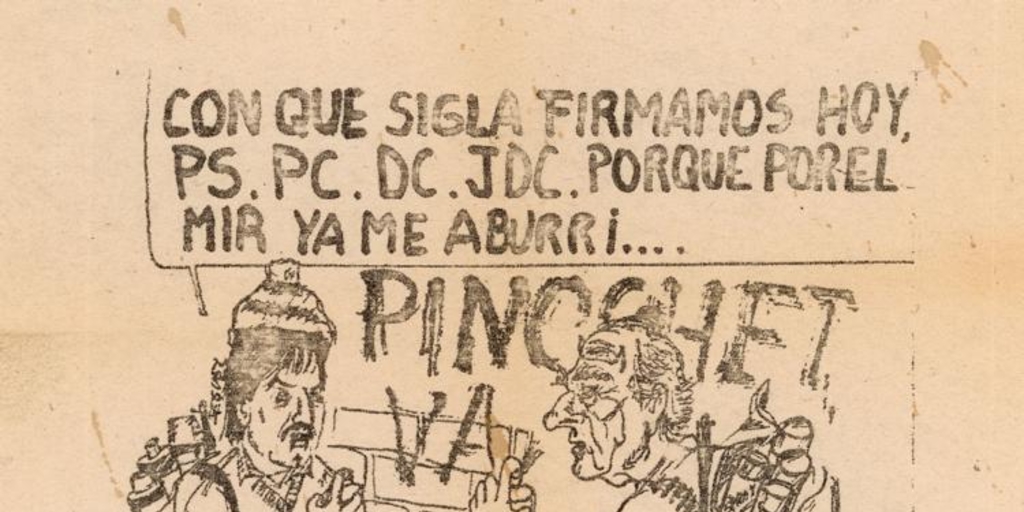 CON QUE SIGLA FIRMAMOS HOY,
PS. PC. DC. JDC. PORQUE POR EL
MIR YA ME ABURRi....
PINOCHET
VA